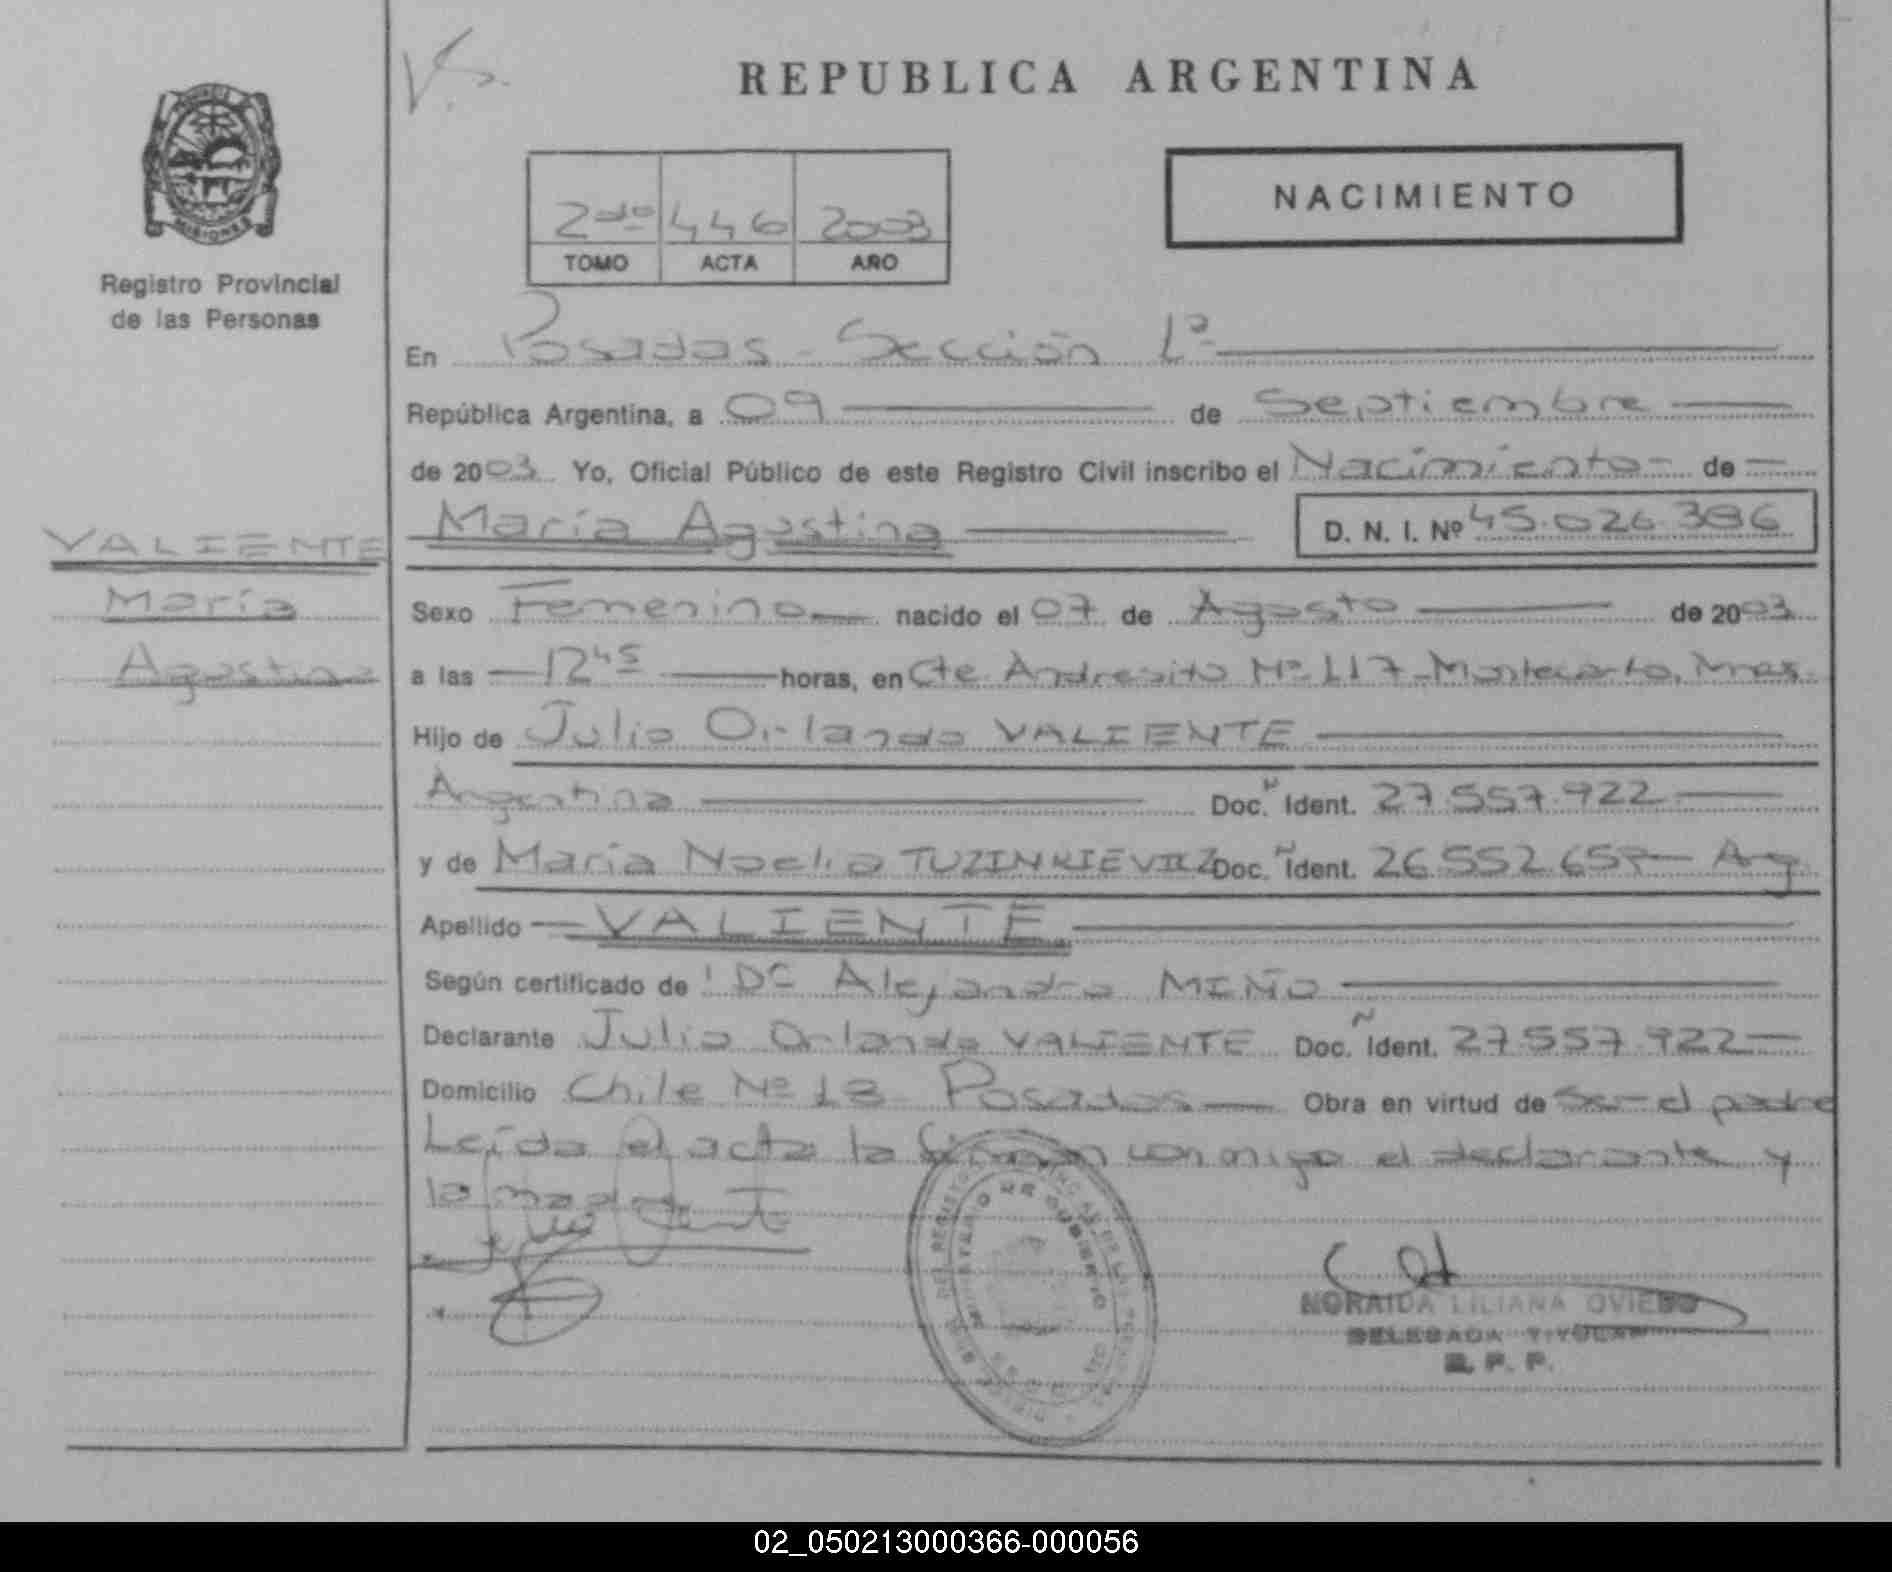 REPUBLICA ARGENTINA
NACIMIENTO
2do 446 2003
TOMO ACTA AÑO
MISIONES
Registro Provincial
de las Personas
En Posadas - Sección 1a
República Argentina, a 09 de Septiembre
de 2003 Yo, Oficial Público de este Registro Civil inscribo el Nacimiento de
María Agustina D. N. I. Nº 45.026.386
VALIENTE
María
Agostina
Sexo Femenino nacido el 07 de Agosto de 2003
a las 12 45 horas, en Cte Andresito Nº 117 - Montecarlo, Mnes.
Hijo de Julio Orlando VALIENTE
Argentina Doc. Ident. 27.557.922
y de María Noelia TUZINKIEVICZ Doc. Ident. 26.552.657 - Arg.
Apellido VALIENTE
Según certificado de Alejandro MIÑO
Declarante Julio Orlando VALIENTE Doc. Ident. 27.557.922
Domicilio Chile Nº 18 Posadas Obra en virtud de Ser el padre
Leída el acta la firman conmigo el declarante y
la madre
NORAIDA LILIANA OVIEDO
DELEGADA TITULAR
R. P. P.
02_050213000366-000056